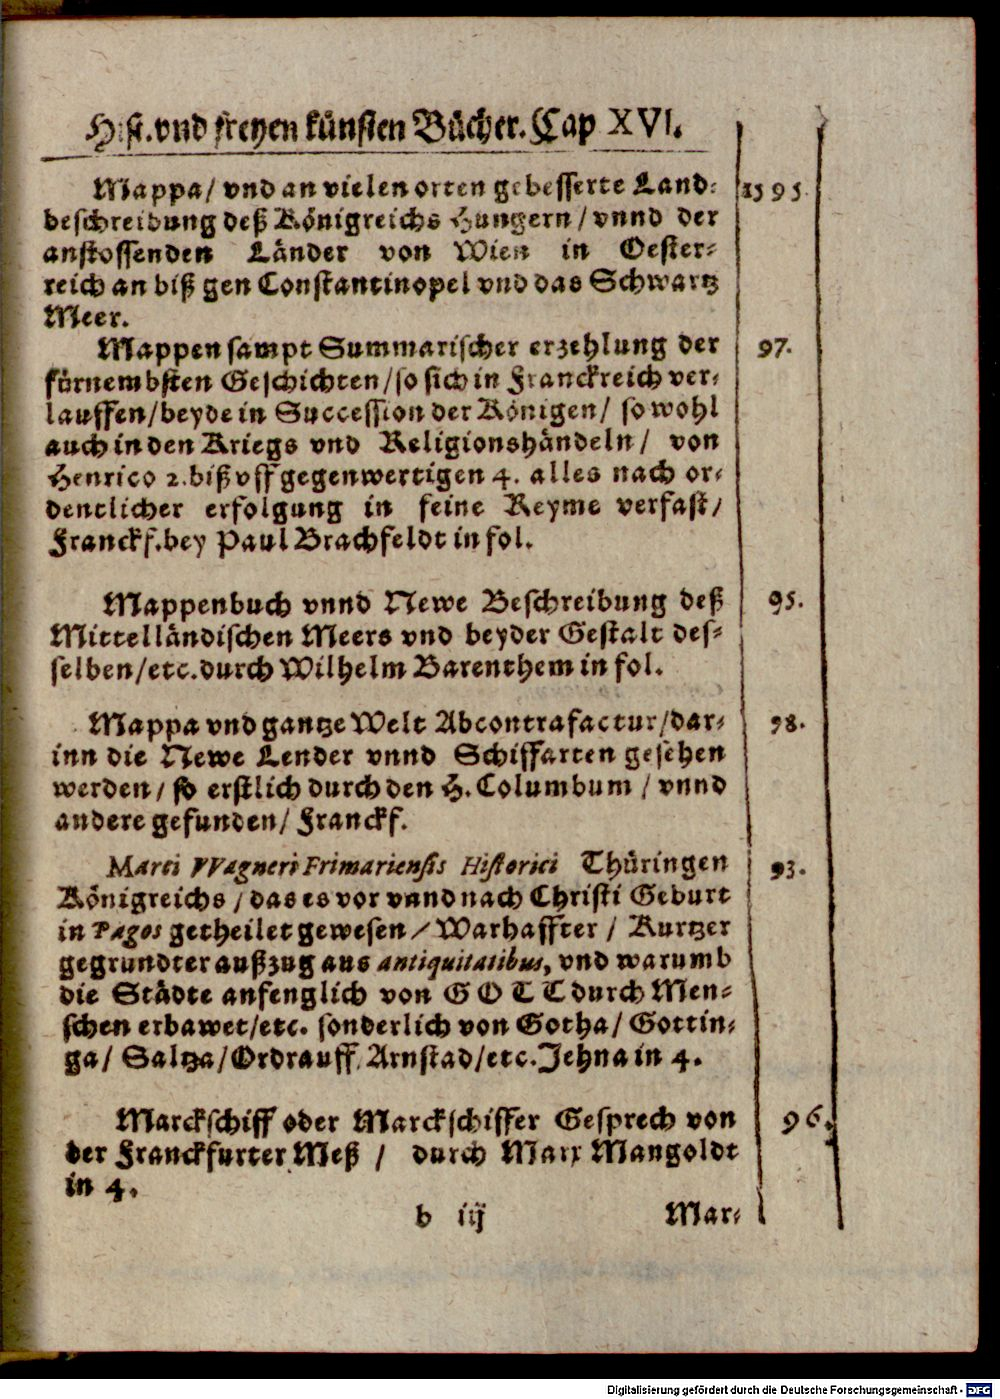 Hist. vnd freyen künsten Bücher. Cap XVI.
Mappa/ vnd an vielen orten gebesserte Land- 1595.
beschreibung deß Königreichs Hungern/ vnnd der
anstossenden Länder von Wien in Oester-
reich an biß gen Constantinopel vnd das Schwartz
Meer.
Mappen sampt Summarischer erzehlung der 97.
fürnembsten Geschichten/ so sich in Franckreich ver-
lauffen/ beyde in Succession der Königen/ so wohl
auch in den Kriegs vnd Religionshändeln/ von
Henrico 2. biß vff gegenwertigen 4. alles nach or-
dentlicher erfolgung in feine Reyme verfast/
Franckf. bey Paul Brachfeldt in fol.
Mappenbuch vnnd Newe Beschreibung deß 95.
Mittelländischen Meers vnd beyder Gestalt des-
selben/ etc. durch Wilhelm Barenthem in fol.
Mappa vnd gantze Welt Abcontrafactur/ dar- 98.
inn die Newe Lender vnnd Schiffarten gesehen
werden/ so erstlich durch den H. Columbum/ vnnd
andere gefunden/ Franckf.
Marci VVagneri Frimariensis Historici Thüringen 93.
Königreichs/ das es vor vnnd nach Christi Geburt
in Pagos getheilet gewesen/ Warhaffter/ Kurtzer
gegrundter außzug aus antiquitatibus, vnd warumb
die Städte anfenglich von GOTT durch Men-
schen erbawet/ etc. sonderlich von Gotha/ Gottin-
ga/ Saltza/ Ordrauff, Arnstad/ etc. Jehna in 4.
Marckschiff oder Marckschiffer Gesprech von 96.
der Franckfurter Meß/ durch Marx Mangoldt
in 4.
b iij Mar-
Digitalisierung gefördert durch die Deutsche Forschungsgemeinschaft - DFG